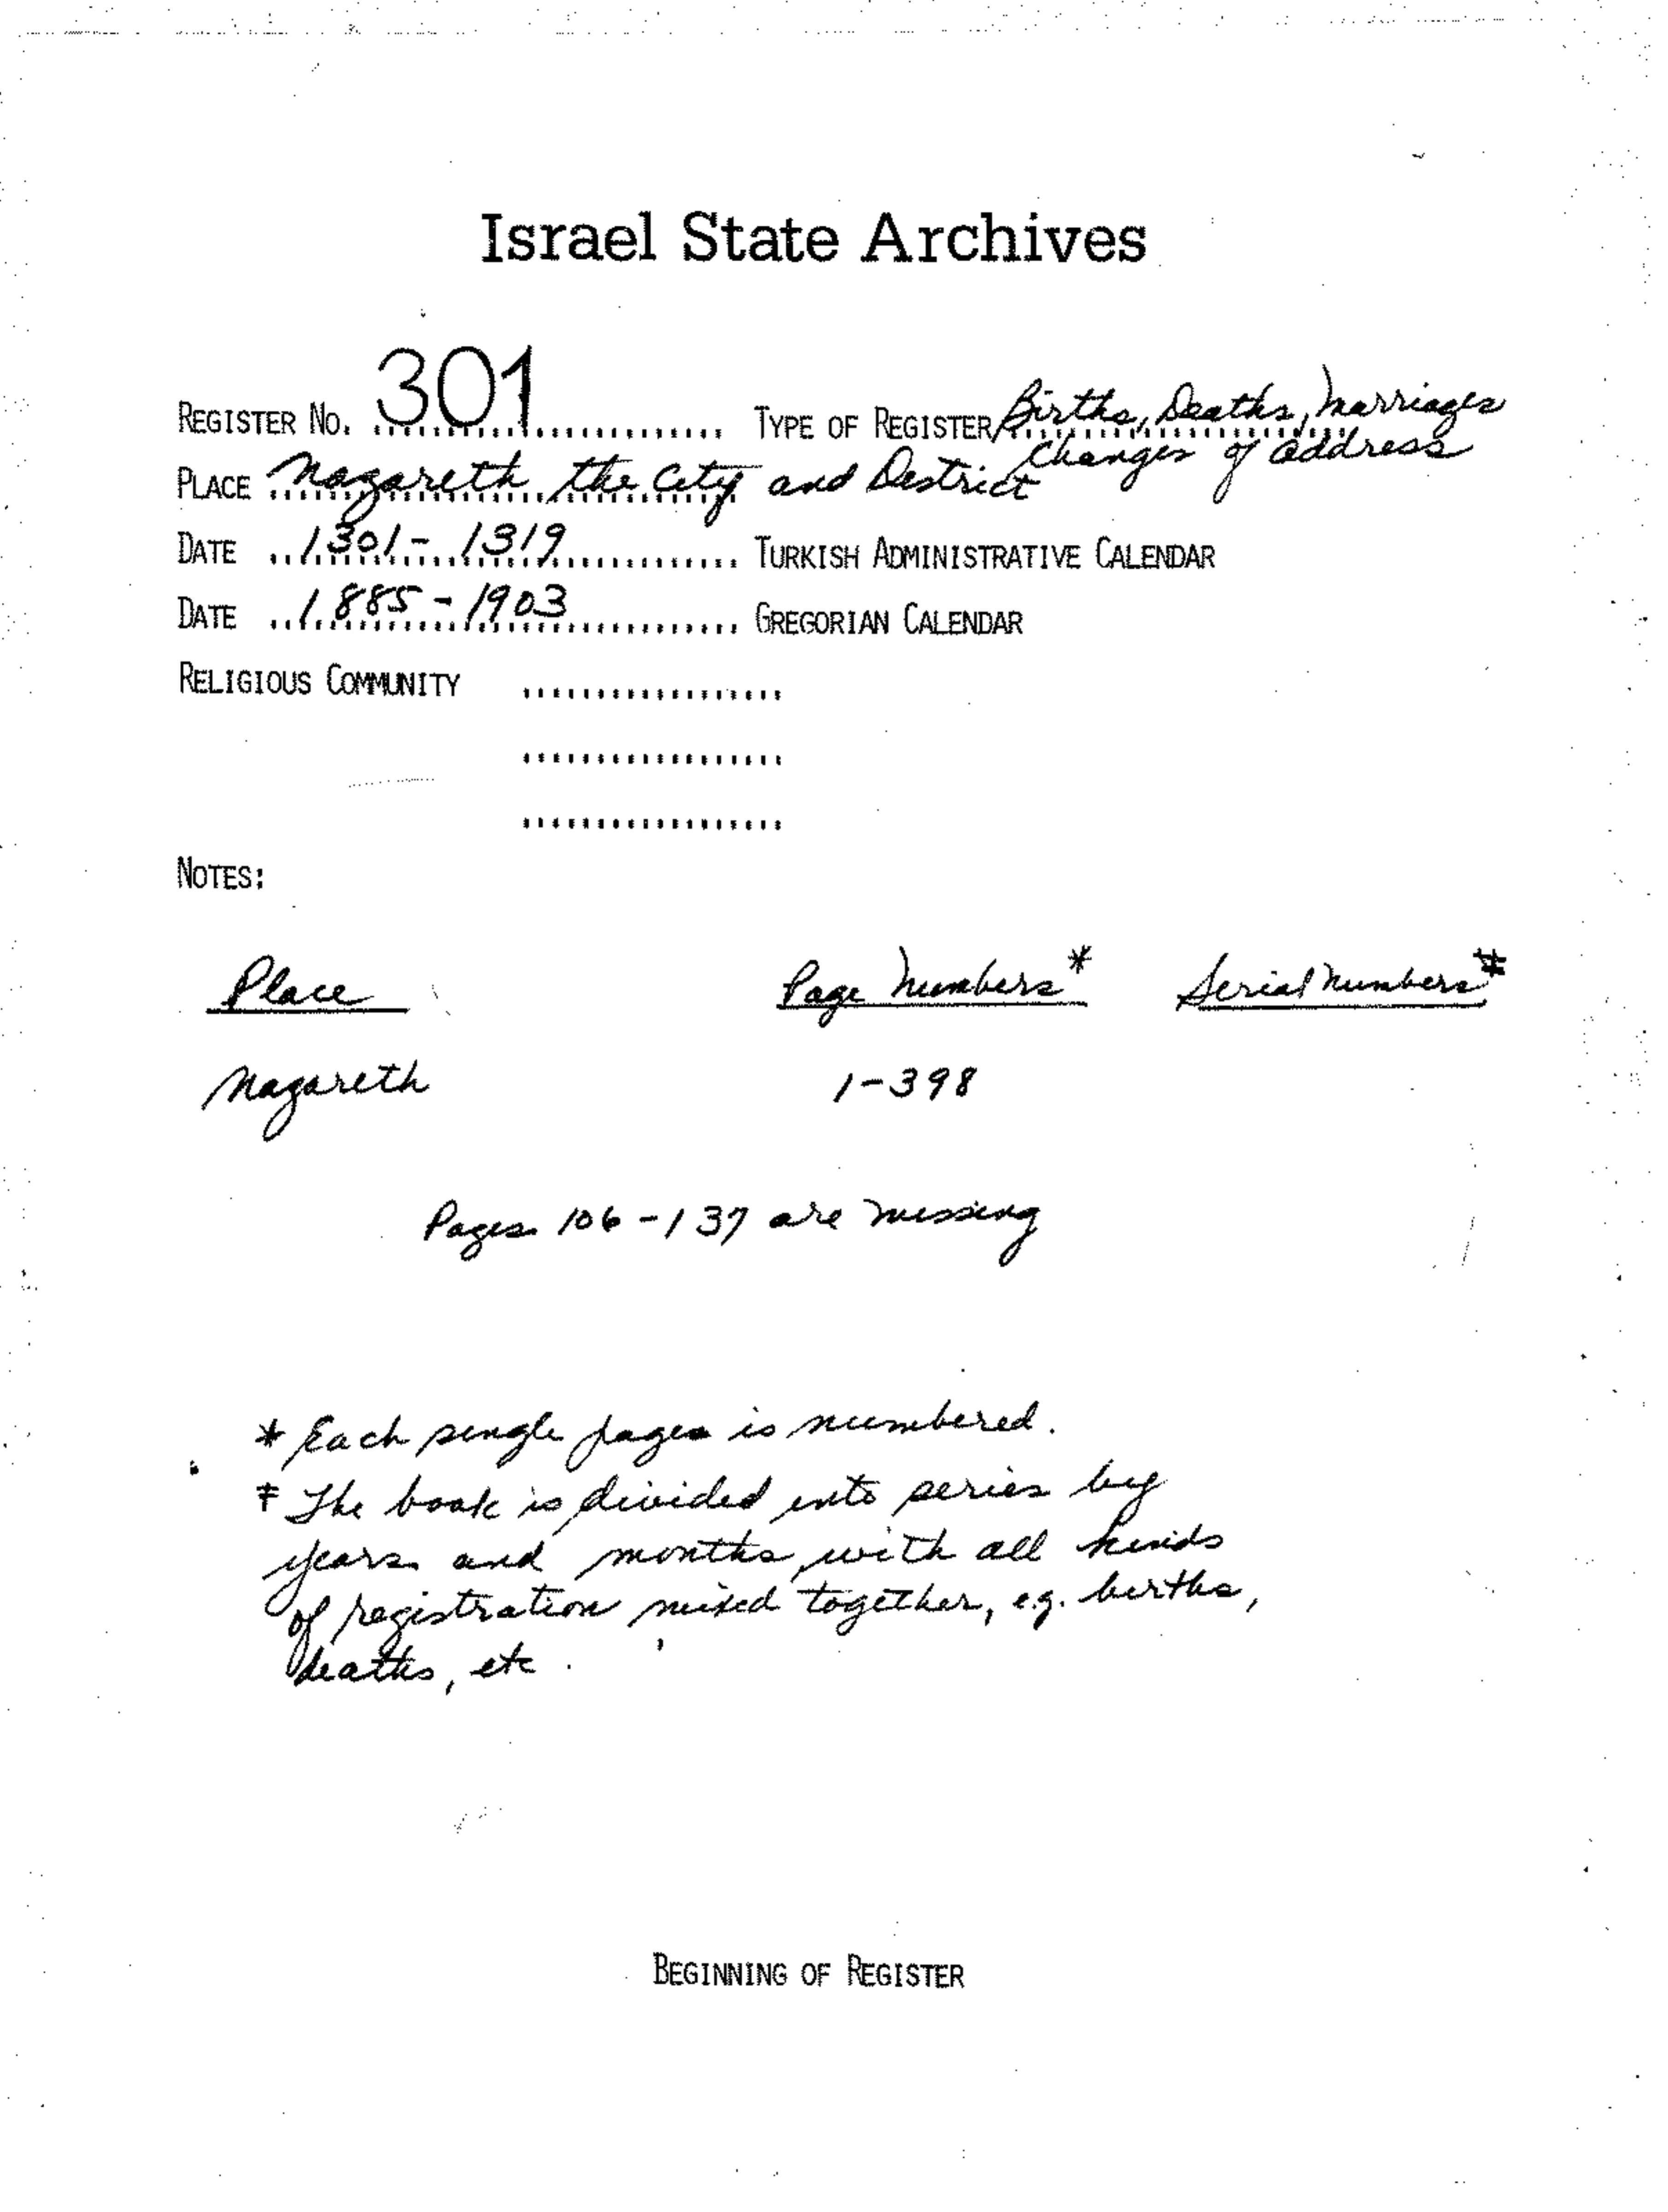 Israel State Archives
REGISTER NO. 301 TYPE OF REGISTER Births, Deaths, Marriages
Changes of address
PLACE Nazareth the City and District
DATE 1301 - 1319 TURKISH ADMINISTRATIVE CALENDAR
DATE 1885 - 1903 GREGORIAN CALENDAR
RELIGIOUS COMMUNITY
NOTES:
Place Page Numbers* Serial Numbers‡
Nazareth 1-398
Pages 106-137 are missing
* Each single pages is numbered.
‡ The book is divided into series by
years and months with all kinds
of registration mixed together, e.g. births,
deaths, etc.
BEGINNING OF REGISTER